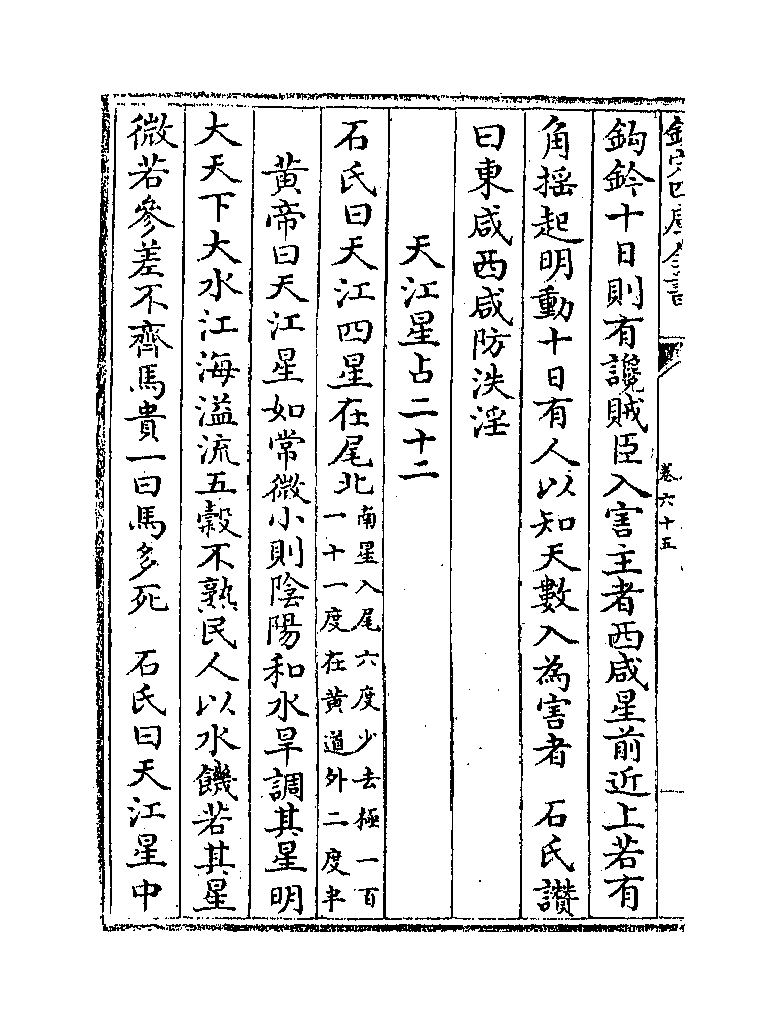 欽定四庫全書
卷六十五
鈎鈐十日則有讒賊臣入害主者西咸星前近上若有
角摇起明動十日有人以知天數入為害者 石氏讃
曰東咸西咸防泆淫
天江星占二十二
石氏曰天江四星在尾北南星入尾六度少去極一百
一十一度在黄道外二度半
黄帝曰天江星如常微小則陰陽和水旱調其星明
大天下大水江海溢流五穀不熟民人以水饑若其星
微若參差不齊馬貴一曰馬多死 石氏曰天江星中